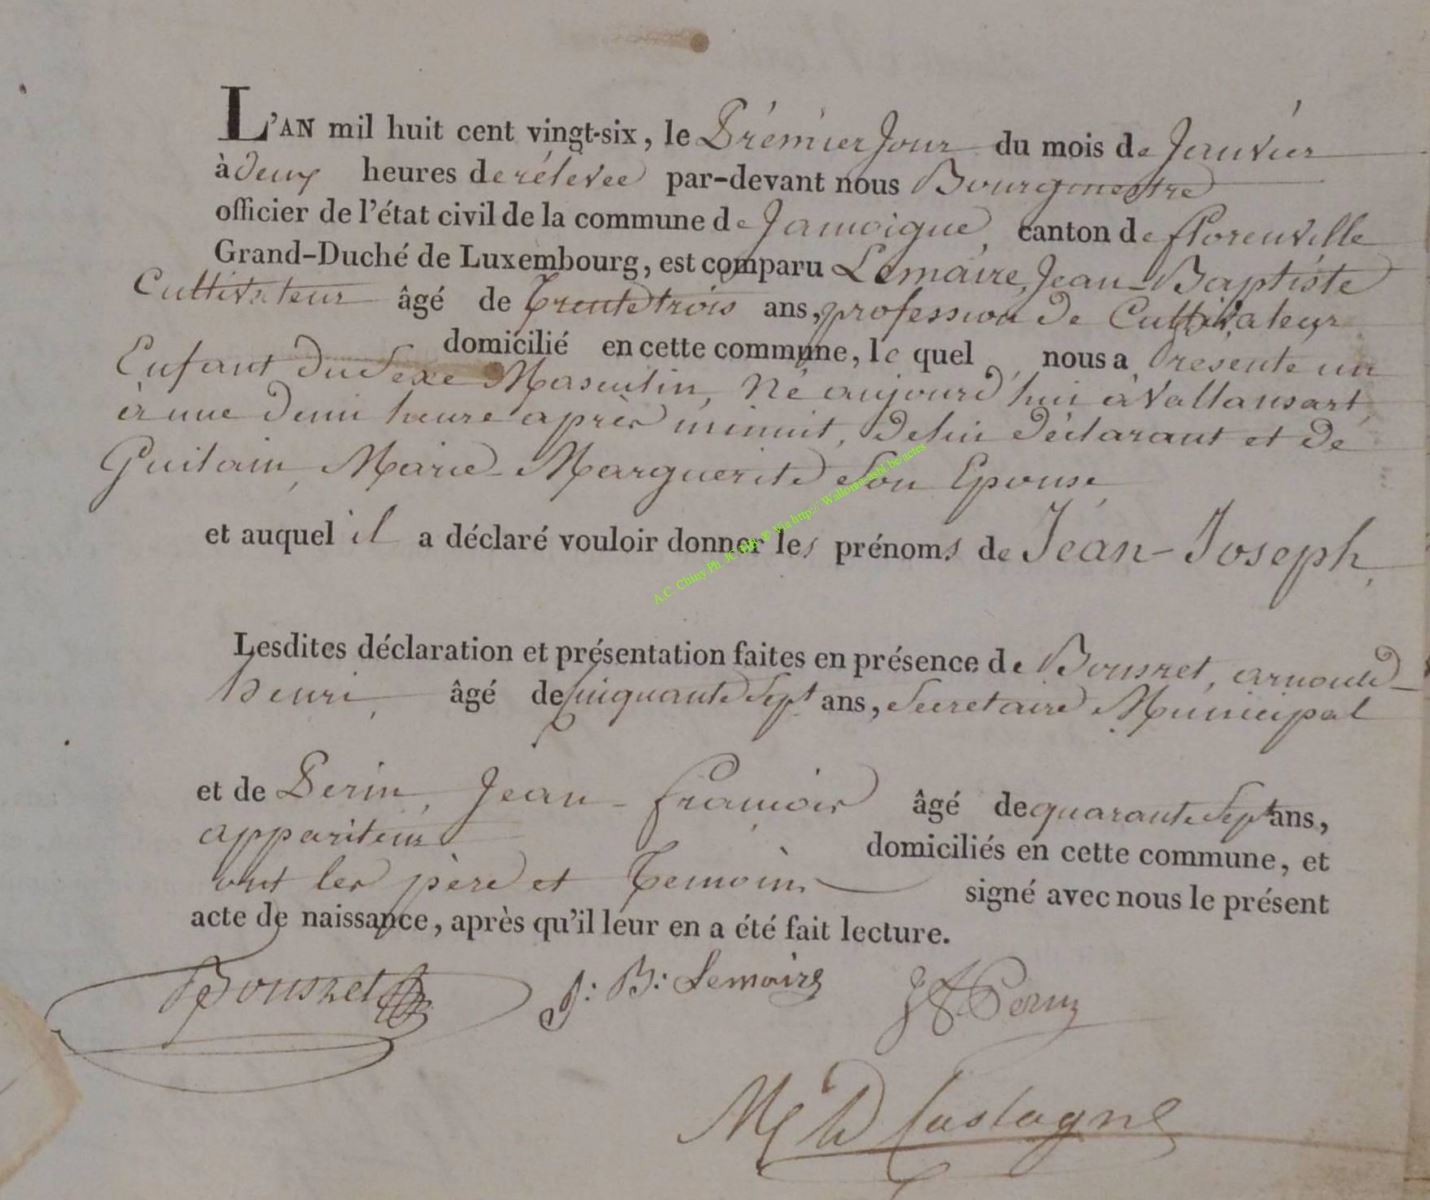 L'AN mil huit cent vingt-six, le Prémier Jour du mois de Janvier
à deux heures de rélévée par-devant nous Bourgmestre
officier de l'état civil de la commune de Jamoigne, canton de florenville
Grand-Duché de Luxembourg, est comparu Lemaire, Jean-Baptiste
Cultivateur âgé de Trente trois ans, profession de Cultivateur
domicilié en cette commune, le quel nous a présenté un
Enfant du Sexe Masculin, Né aujourd'hui à Vallansart,
à une demi heure après minuit, de lui déclarant et de
Guilain, Marie-Marguerite son Epouse,
et auquel il a déclaré vouloir donner les prénoms de Jéan-Joseph,
Lesdites déclaration et présentation faites en présence de Bousret, arnould-
henri, âgé de Cinquante Sept ans, Secretaire Municipal
et de Perin, Jean-francois âgé de quarante Sept ans,
appariteur domiciliés en cette commune, et
ont les père et Temoins signé avec nous le présent
acte de naissance, après qu'il leur en a été fait lecture.
Bousret J: B: Lemaire J F Perin
Castagne
A.C. Chiny Ph. JC Via http:// actes